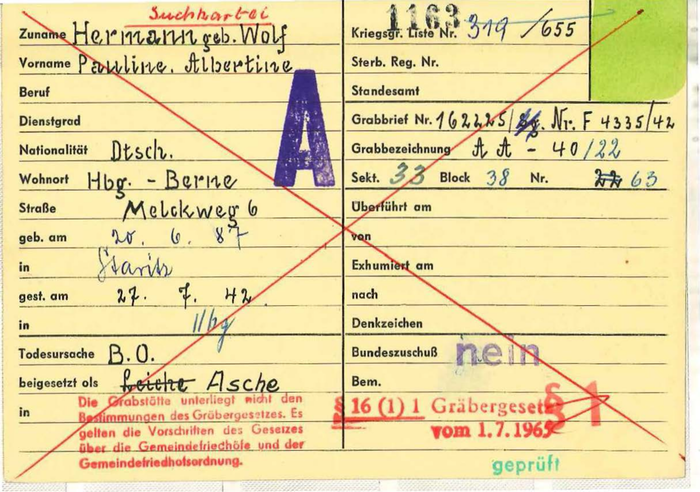 Suchkartei
1163
Zuname Hermann geb. Wolf
Vorname Pauline, Albertine
Beruf
Dienstgrad
Nationalität Dtsch.
Wohnort Hbg. - Berne
Straße Melckweg 6
geb. am 20. 6. 87
in Staritz
gest. am 27. 7. 42
in Hbg
Todesursache B.O.
beigesetzt als Leiche Asche
in
Die Grabstätte unterliegt nicht den
Bestimmungen des Gräbergesetzes. Es
gelten die Vorschriften des Gesetzes
über die Gemeindefriedhöfe und der
Gemeindefriedhofsordnung.
A
Kriegsgr. Liste Nr. 319/655
Sterb. Reg. Nr.
Standesamt
Grabbrief Nr. 162225/ Nr. F 4335/42
Grabbezeichnung A A - 40/22
Sekt. 33 Block 38 Nr. 22 63
Überführt am
von
Exhumiert am
nach
Denkzeichen
Bundeszuschuß nein
Bem.
§ 16 (1) 1 Gräbergesetz
vom 1.7.1965
§ 1
geprüft